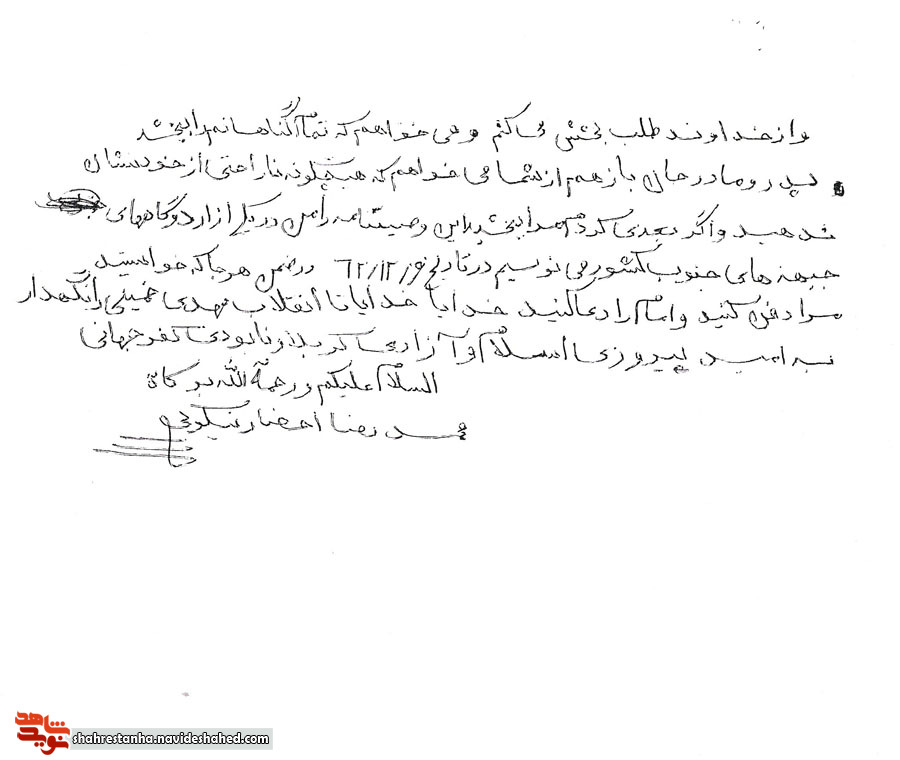 و از خداوند طلب بخشش می کنم و می خواهم که تمام گناهانم را ببخشد
پدر و مادر جان باز هم از شما می خواهم که هیچگونه ناراحتی از خودتان
ندهید و اگر بدی کردم مرا ببخشید این وصیتنامه را من در یکی از اردوگاههای
جبهه های جنوب کشور می نویسم در تاریخ ۶۲/۱۲/ در ضمن هر جا که خواستید
مرا دفن کنید و امام را دعا کنید خدایا خدایا تا انقلاب مهدی خمینی را نگهدار
به امید پیروزی اسلام و آزادی کربلا و نابودی کفر جهانی
السلام علیکم و رحمة الله برکاة
محمد رضا احضار نیکوئی
شاهد
نوید
shahrestanha.navideshahed.com